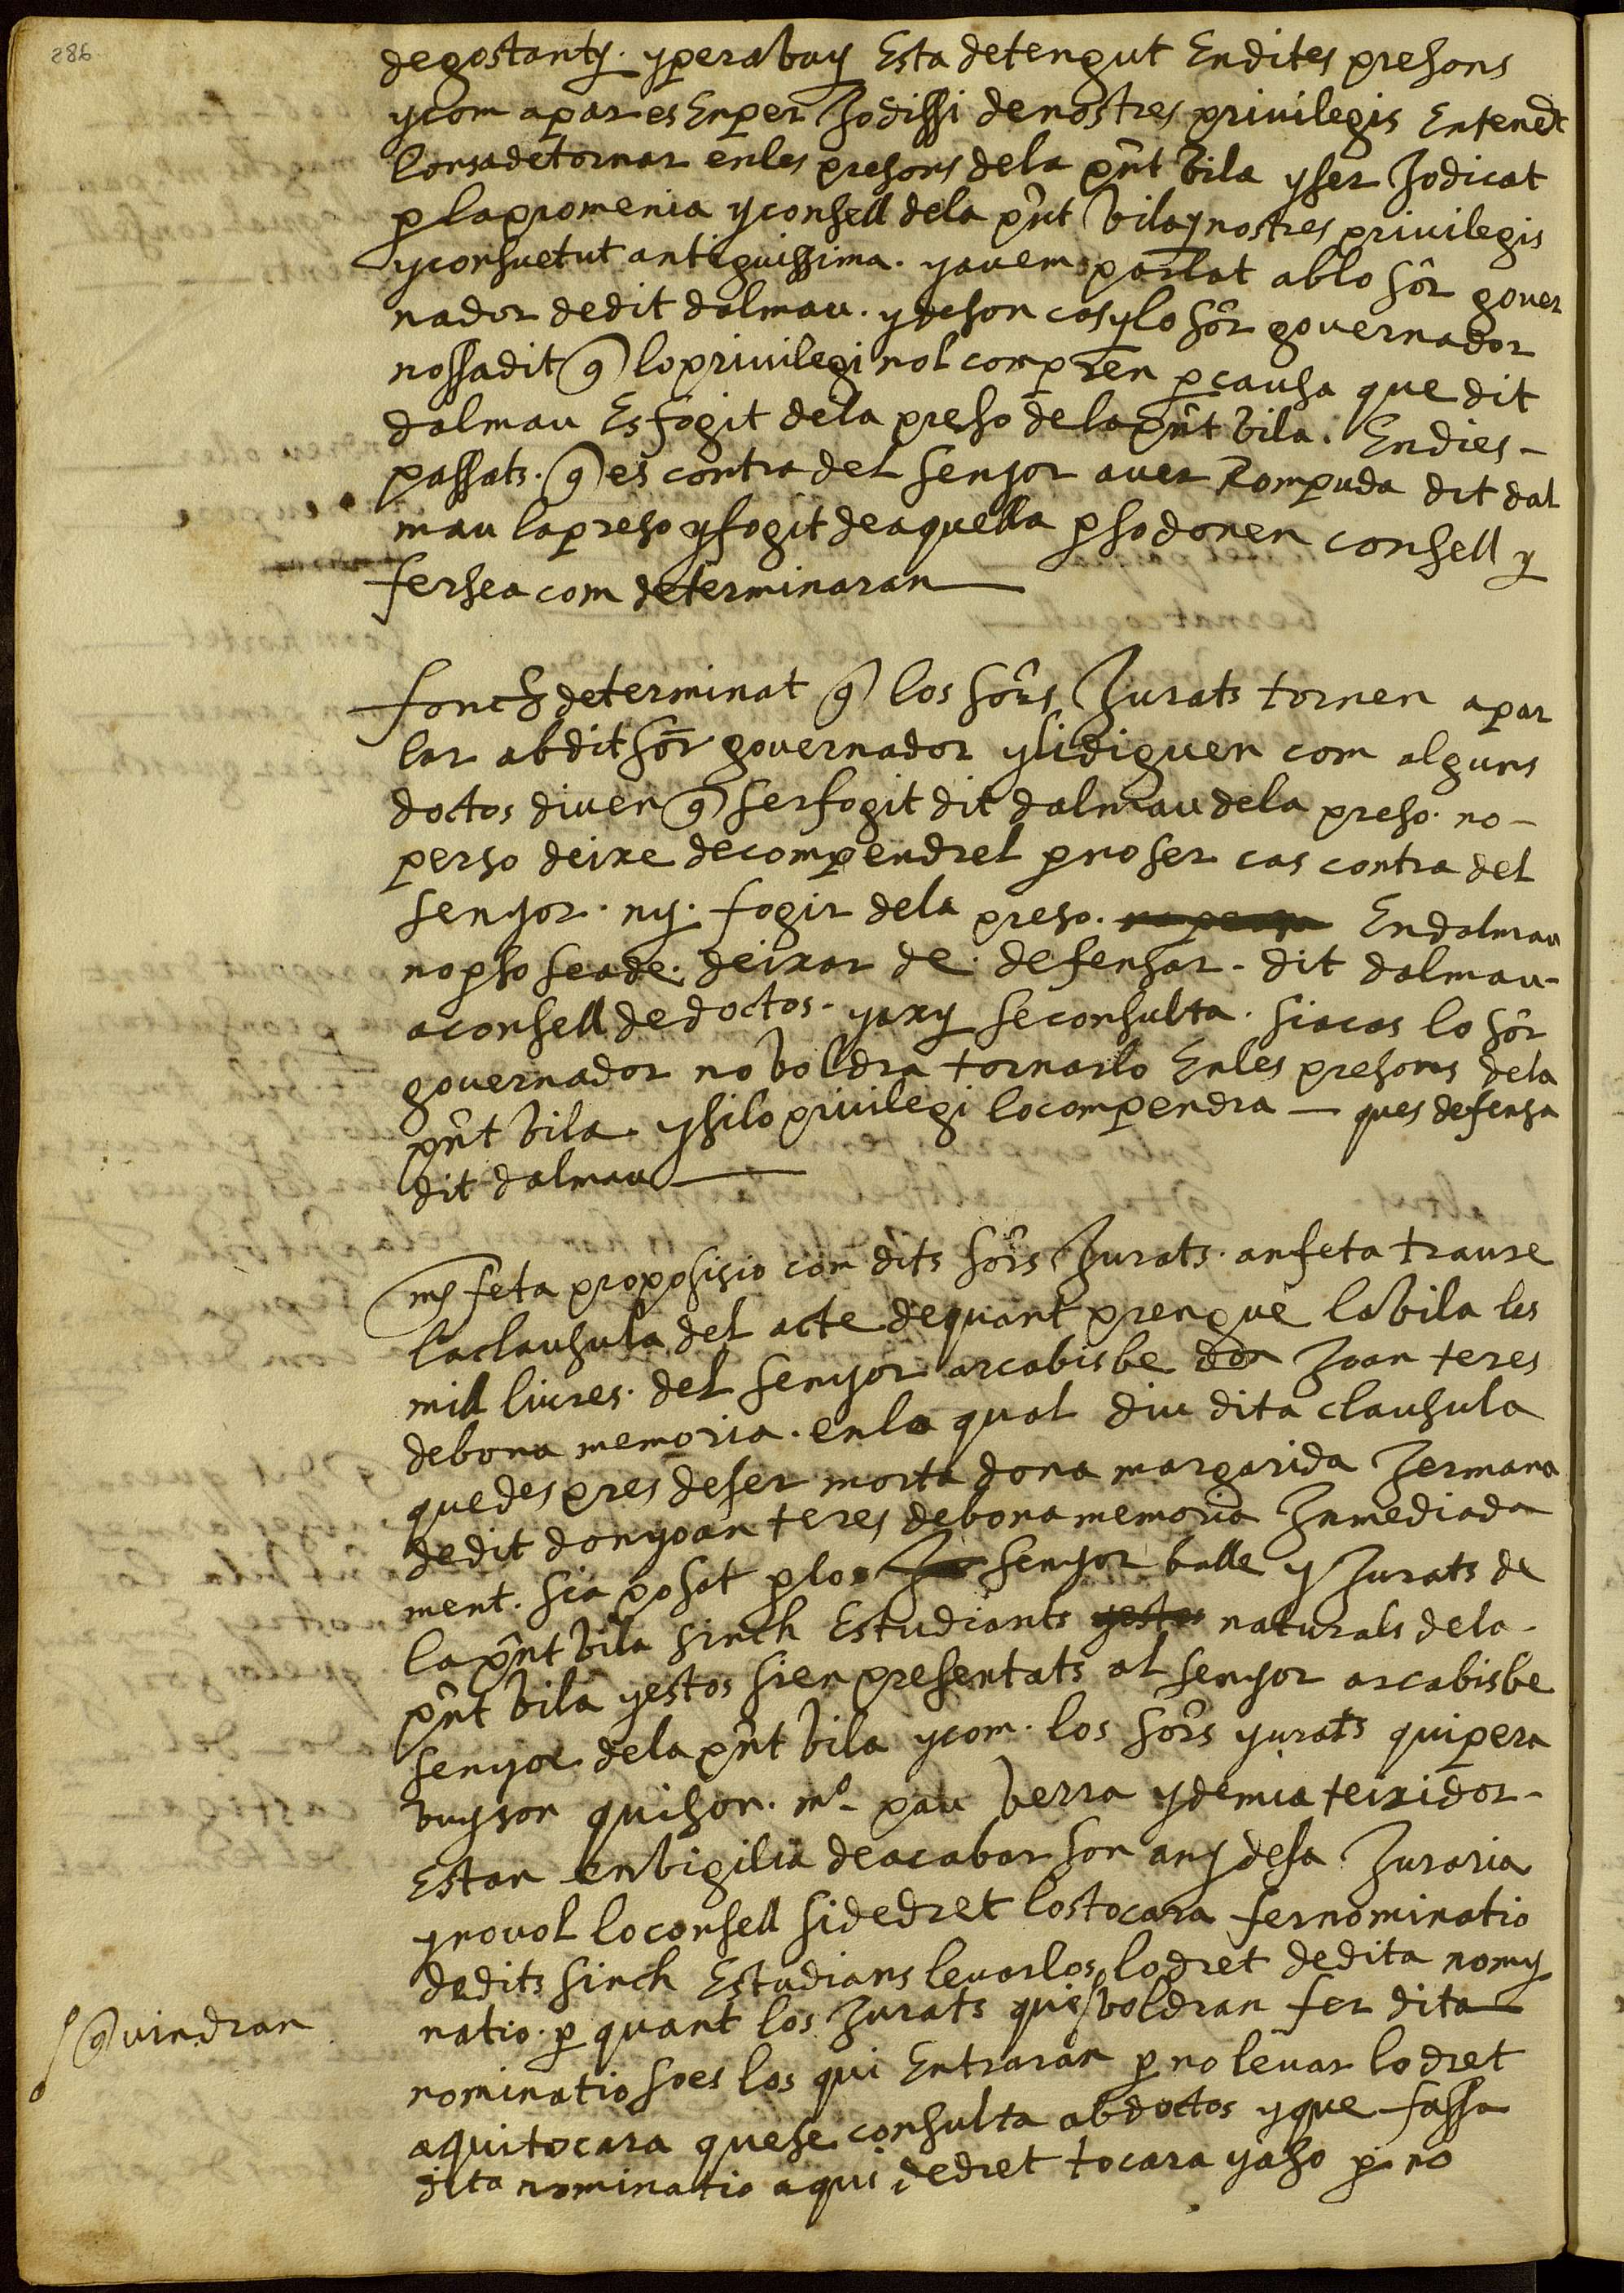 286
degostanty. y perabuy Esta detengut Endites presons
y com apar es Enper Jodissi de nostres privilegis Entenedt
lonsa de tornar en les presons de la pnt bila y ser Jodicat
p la promenia y consell de la pnt bila y nostres privilegis
y consuetut antiguissima. y avem parlat ab lo sor gover
nador de dit dalmau. y de son cas y lo sor governador
nos sa dit q lo privilegi nol compren p causa que dit
dalmau Es fogit de la preso de la pnt bila. En dies -
passats. q es contra del senyor aver Rompuda dit dal
mau la preso y fogit de aquella p so donen consell y
fersea com determinaran
fonch determinat q los sors Jurats tornen a par
lar ab dit sor governador y li diguen com alguns
doctos diuen q ser fogit dit dalmau de la preso. no -
per so deixe de compendrel p no ser cas contra del
senyor. ny. fogir de la preso. En dalmau
no p so se a de. deixar de. defensar. dit dalmau -
a consell de doctos. y axy se consulta. si a cas lo sor
governador no boldra tornarlo En les presons de la
pnt bila y si lo privilegi lo compendra — ques defensa
dit dalmau
mes feta proposisio com dits sors Jurats. an feta traure
la clausula del acte de quant prengue la bila les
mill liures. del senyor arcabisbe don Joan teres
de bona memoria. en la qual diu dita clausula
que despres de ser morta dona margarida Jermana
de dit don yoan teres de bona memoria Inmediada
ment. sia posat p los senyor balle y Jurats de
la pnt bila sinch Estudiants naturals de la -
pnt bila y estos sien presentats al senyor arcabisbe
senyor de la pnt bila y com. los sors yurats qui pera
buy son qui son. mº pau berra y demia teixidor -
Estan en bigilia de acabar son any de sa Juraria
y no vol lo consell si de dret los tocara fer nominatio
de dits sinch Estudians levarlos lo dret de dita nomy
natio. p quant los Jurats que boldran fer dita
q vindran
nominatio so es los qui Entraran p no levar lo dret
a qui tocara que se consulta ab doctos y que fassa
dita nominatio a qui de dret tocara y aso p no